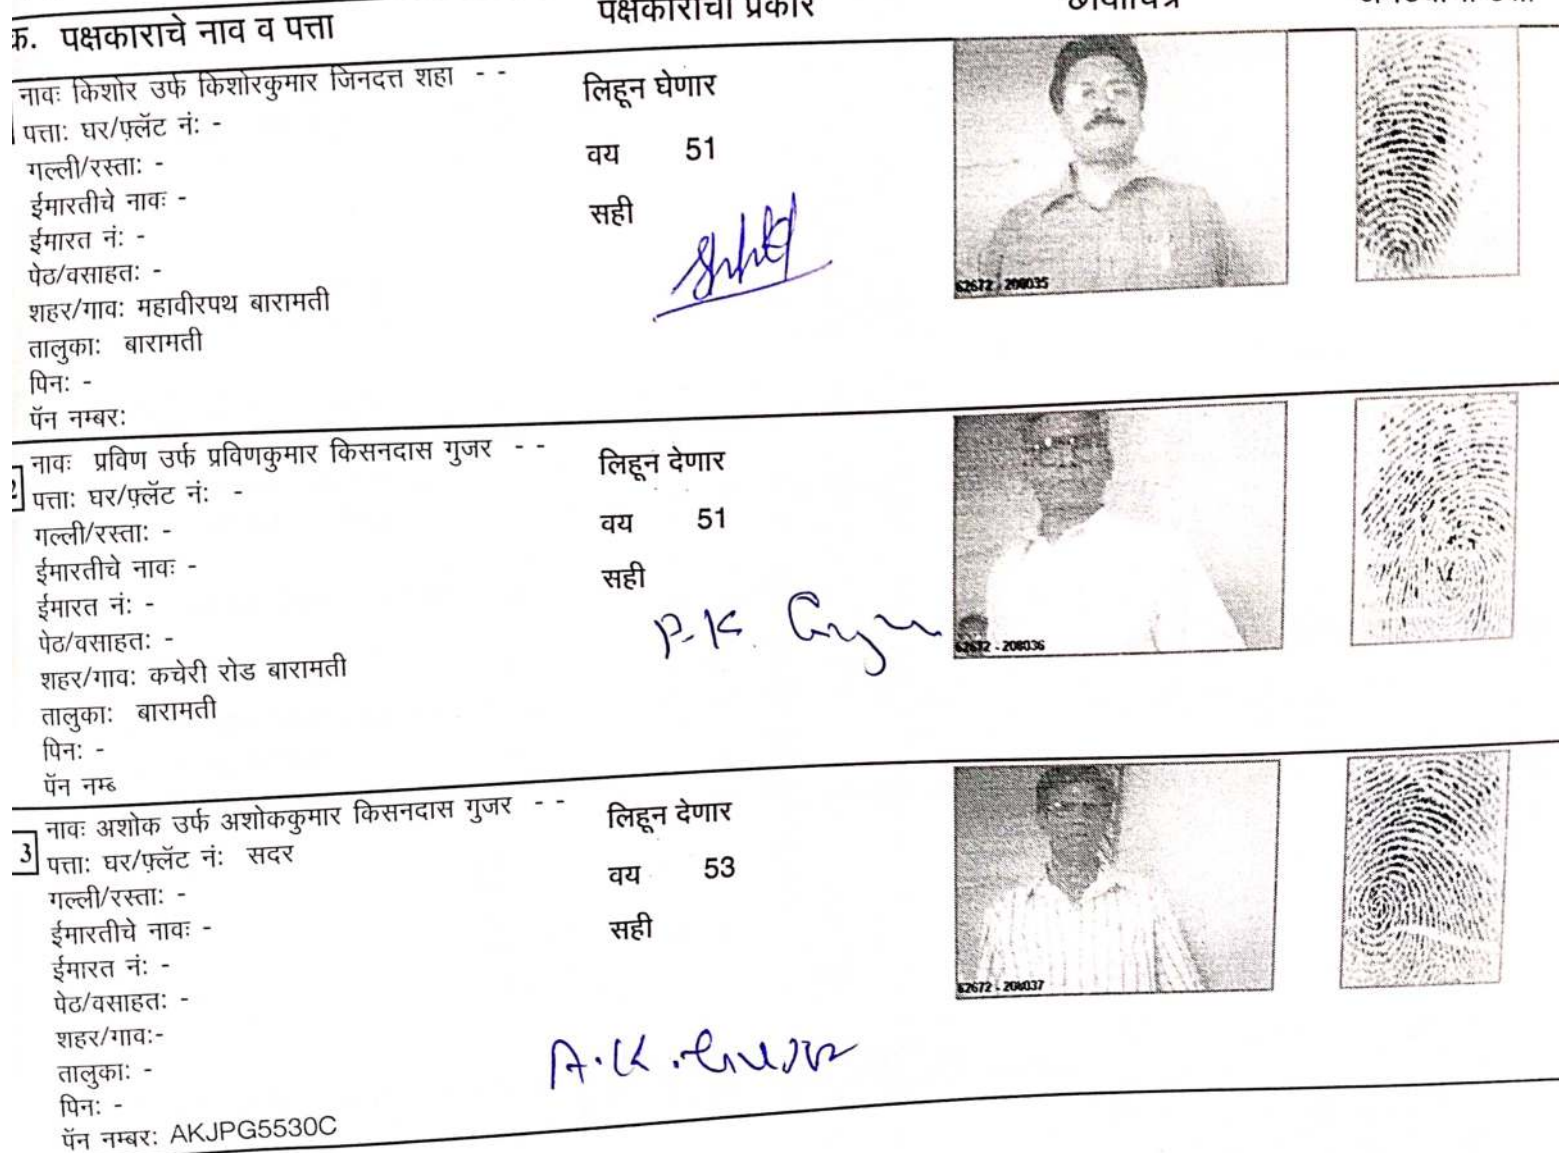 क्र. पक्षकाराचे नाव व पत्ता पक्षकाराचा प्रकार छायाचित्र
नावः किशोर उर्फ किशोरकुमार जिनदत्त शहा - -
पत्ताः घर/फ़्लॅट नंः -
गल्ली/रस्ताः -
ईमारतीचे नावः -
ईमारत नंः -
पेठ/वसाहतः -
शहर/गावः महावीरपथ बारामती
तालुकाः बारामती
पिनः -
पॅन नम्बरः
लिहून घेणार
वय 51
सही
62672 - 208035
2
नावः प्रविण उर्फ प्रविणकुमार किसनदास गुजर - -
पत्ताः घर/फ़्लॅट नंः -
गल्ली/रस्ताः -
ईमारतीचे नावः -
ईमारत नंः -
पेठ/वसाहतः -
शहर/गावः कचेरी रोड बारामती
तालुकाः बारामती
पिनः -
पॅन नम्ब
लिहून देणार
वय 51
सही
P.K.
62672 - 208036
3
नावः अशोक उर्फ अशोककुमार किसनदास गुजर - -
पत्ताः घर/फ़्लॅट नंः सदर
गल्ली/रस्ताः -
ईमारतीचे नावः -
ईमारत नंः -
पेठ/वसाहतः -
शहर/गावः-
तालुकाः -
पिनः -
पॅन नम्बरः AKJPG5530C
लिहून देणार
वय 53
सही
A.K.
62672 - 208037